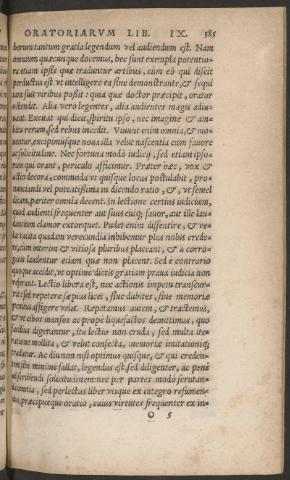 ORATORIARVM LIB. IX. 585
borum tantum gratia legendum vel audiendum est. Nam
omnium quæcunque docemus, hec sunt exempla potentio-
ra etiam ipsis quæ traduntur artibus, cum eò qui discit
perductus est vt intelligere ea sine demonstrante, & sequi
iam suis viribus possit: quia quæ doctor præcipit, orator
ostendit. Alia verò legentes, alia audientes magis adiu-
uant. Excitat qui dicit spiritu ipso, nec imagine & am-
bitu rerum, sed rebus incedit. Viuunt enim omnia, & mo-
uentur, excipimusque noua illa velut nascentia cum fauore
ac solicitudine. Nec fortuna modò iudicij, sed etiam ipso-
rum qui orant, periculo afficimur. Præter hæc, vox &
actio decora, commoda vt quisque locus postulabit, pro-
nunciandi vel potentissima in dicendo ratio, &, vt semel
dicam, pariter omnia docent. In lectione certius iudicium,
quod audienti frequenter aut suus cuique fauor, aut ille lau-
dantium clamor extorquet. Pudet enim dissentire, & ve-
lut tacita quadam verecundia inhibemur plus nobis crede-
re, cum interim & vitiosa pluribus placeant, & à corro-
gatis laudentur etiam quæ non placent. Sed è contrario
quoque accidit, vt optimè dictis gratiam praua iudicia non
referant. Lectio libera est, nec actionis impetu transcur-
rit: sed repetere sæpius licet, siue dubites, siue memoriæ
penitus affigere velis. Repetamus autem, & tractemus,
& vt cibos mansos ac propè liquefactos demittimus, quo
facilius digerantur, ita lectio non cruda, sed multa ite-
ratione mollita, & velut confecta, memoriæ imitationique
tradatur. Ac diu non nisi optimus quisque, & qui creden-
tem sibi minimè fallat, legendus est: sed diligenter, ac penè
ad scribendi solicitudinem: nec per partes modò scrutan-
da omnia, sed perlectus liber vtique ex integro resumen-
dus, præcipuèque oratio, cuius virtutes frequenter ex in-
O 5